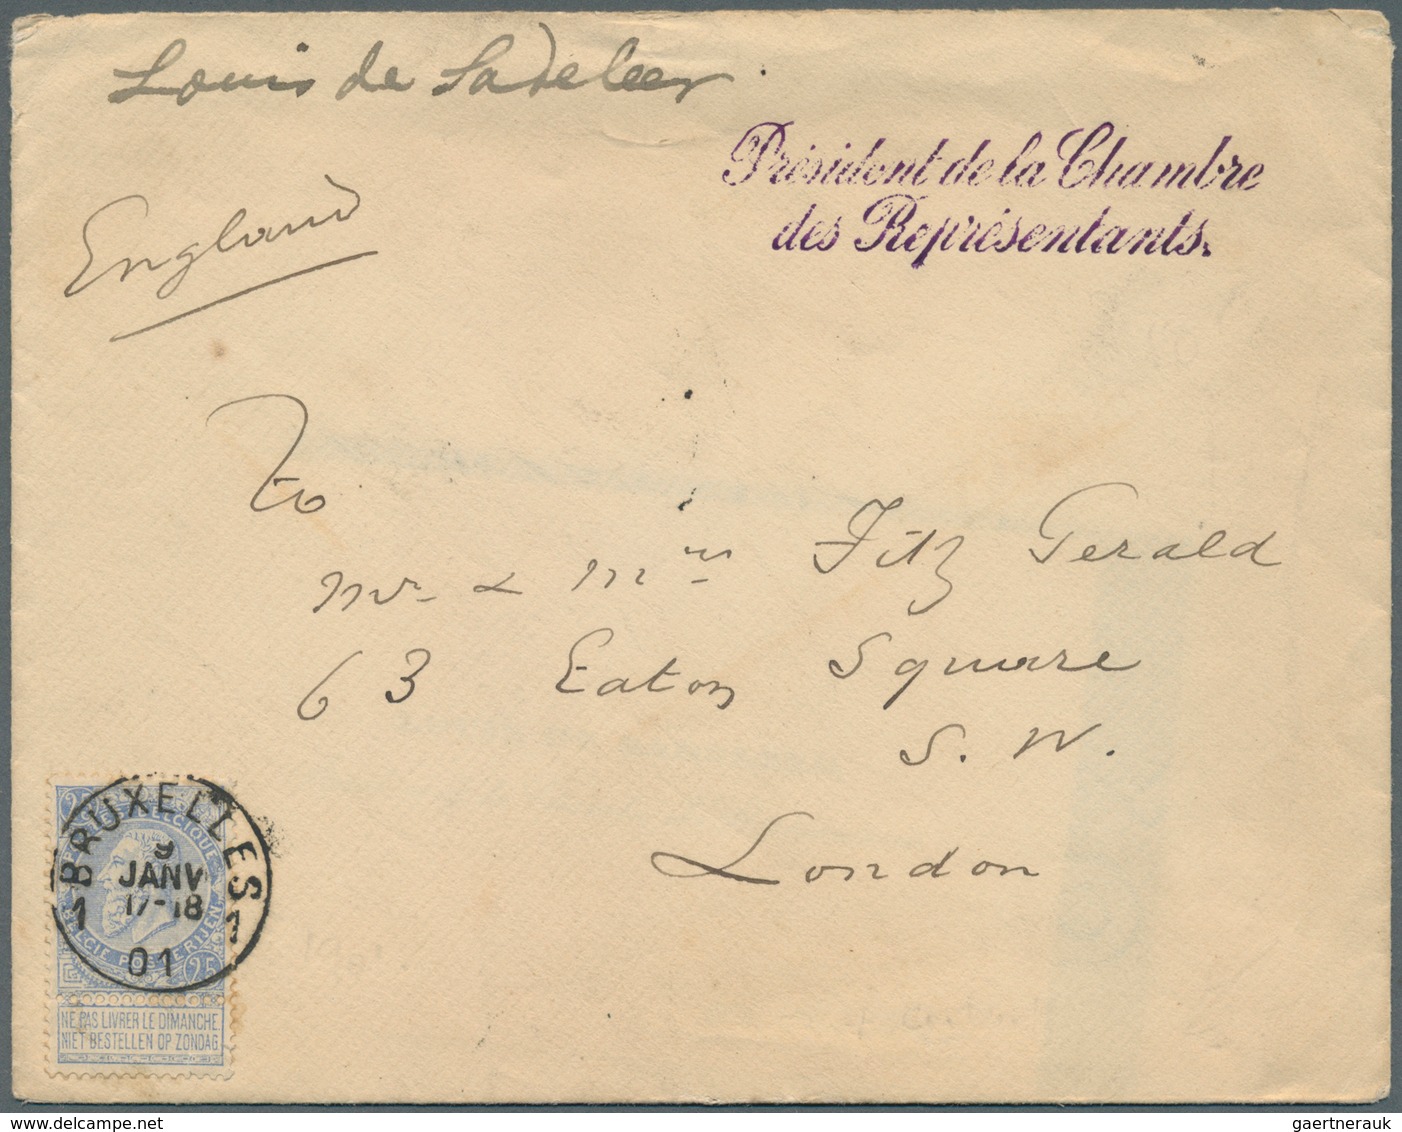 Louis de Sadeleer
Président de la Chambre
des Représentants.
England
To
Mr & Mrs Fitz Gerald
63 Eaton Square
S. W.
London
BRUXELLES
9
JANV
17-18
1 1
01
NE PAS LIVRER LE DIMANCHE
NIET BESTELLEN OP ZONDAG
gaertnerauk @ delcampe.net